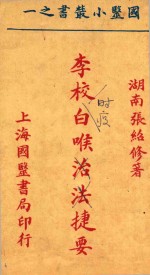 國医小叢書之一
湖南張紹修著
李校白喉治法捷要
時疫
上海國医書局印行